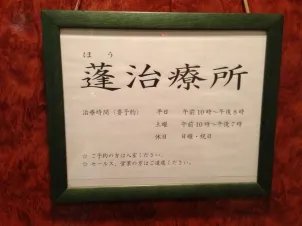 ほう
蓬治療所
治療時間(要予約) 平日 午前10時～午後8時
土曜 午前10時～午後7時
休日 日曜・祝日
※ご予約の方は入室ください。
※セールス、営業の方はご遠慮ください。